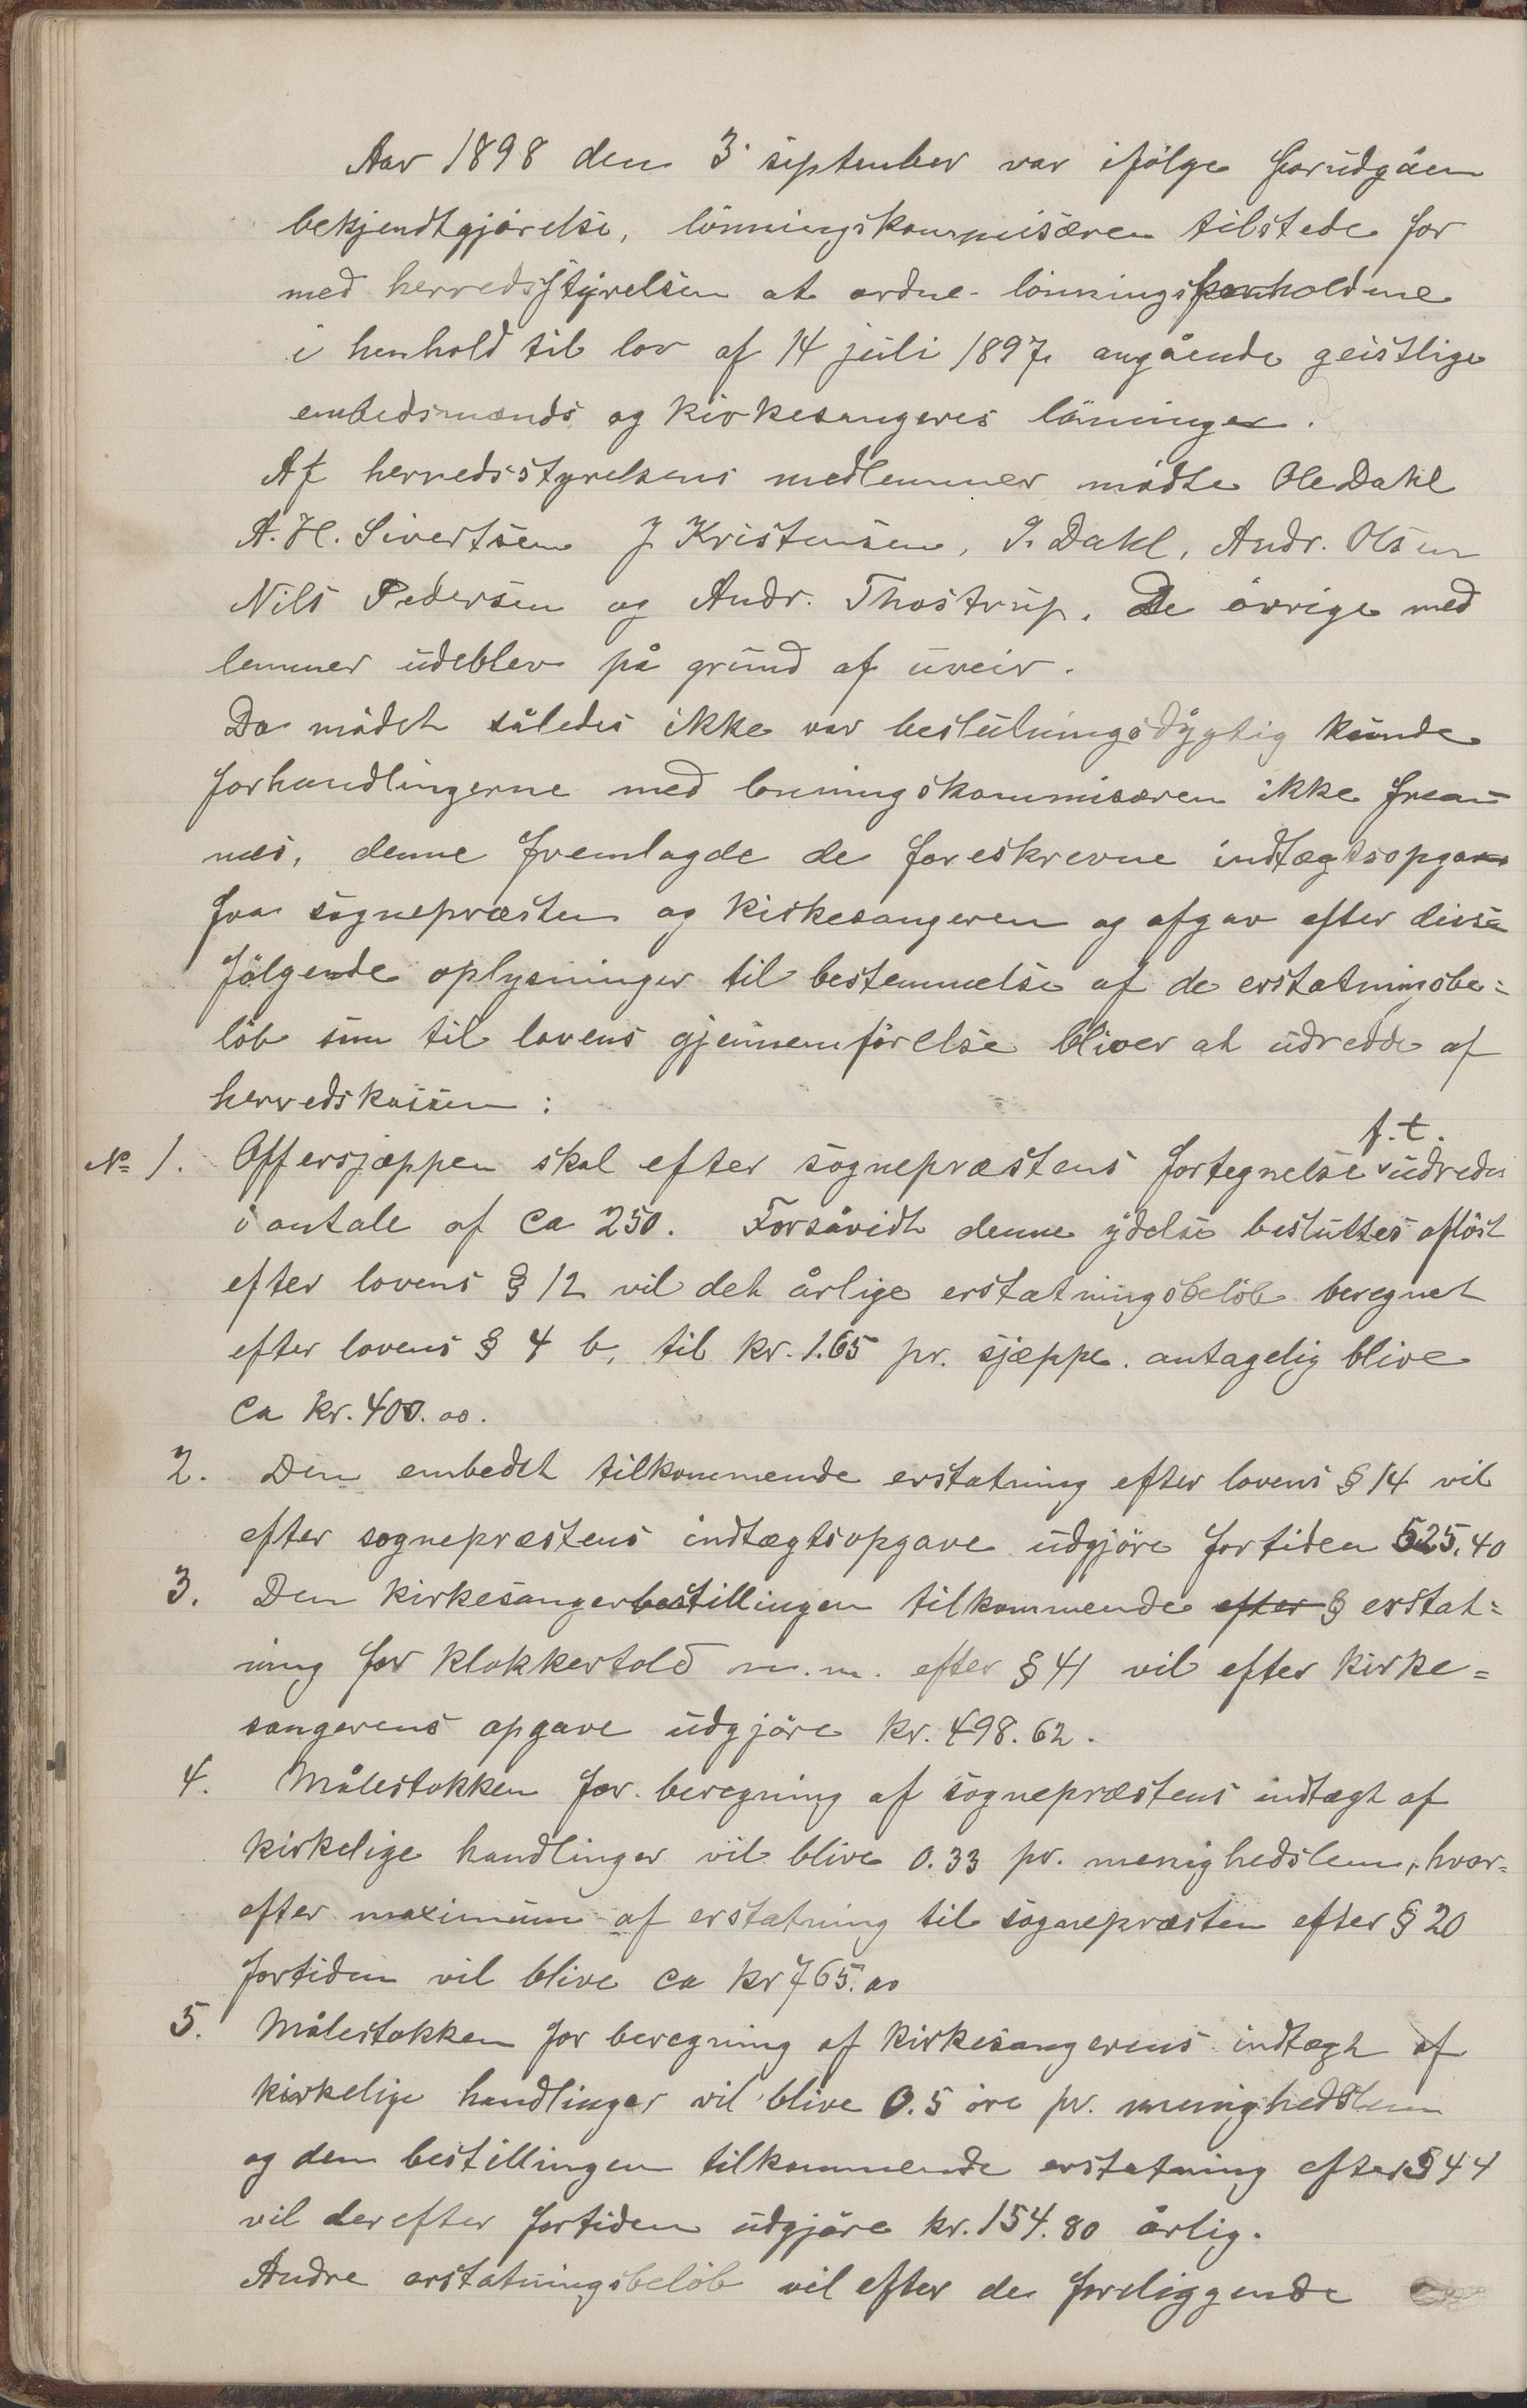 Aar 1898 den 3' september var ifölge forudgåen
bekjendtgjörelse, lönningskommisæren tilstede for
med herredsstyrelsen at ordne lönningsforholdene
i henhold til lov af 14 juli 1897 angående geistlige
embedsmænds og kirkesangeres lönninger.
Af herredsstyrelsens medlemmer mödte Ole Dahl
A. H. Sivertsen J Kristensen, P. Dahl, Andr. Olsen
Nils Pedersen og Andr. Thostrup. De övrige med
lemmer udeblev på grund af uveir.
Da mödet således ikke var beslutningsdygtig kunde
forhandlingerne med lönningskommisæren ikke frem
mes, denne fremlagde de foreskrevne indtægtsopgaver
fra sognepræsten og kirkesangeren og afgav efter disse
fölgende oplysninger til bestemmelse af de erstatningsbe=
löb som til lovens gjennemförelse bliver at udrede af
herredskassen:
№ 1. Offersjæppen skal efter sognepræstens fortegnelse f.t. udredes
i antale af ca 250. Forsåvidt denne ydelse besluttes aflöst
efter lovens § 12 vil det årlige erstatningsbelöb beregnet
efter lovens § 4 b, til kr. 1.65 pr. sjæppe. antagelig blive
ca kr. 400.00.
2. Den embedet tilkommende erstatning efter lovens § 14 vil
efter sognepræstens indtægtsopgave udgjöre fortiden 525,40
3. Den kirkesangerbestillingen tilkommende efter § erstat=
ning for klokkertold m.m. efter § 41 vil efter kirke=
sangerens opgave udgjöre kr. 498.62.
4. Målestokken for beregning af sognepræstens indtægt af
kirkelige handlinger vil blive 0.33 pr. menighedslem, hvor=
efter maximum af erstatning til sognepræsten efter § 20
fortiden vil blive ca kr 765.00
5. Målestokken for beregning af kirkesangerens indtægt af
kirkelige handlinger vil blive 0.5 öre pr. menighedslem
og den bestillingen tilkommende erstatning efter § 44
vil derefter fortiden udgjöre kr. 154.80 årlig.
Andre erstatningsbelöb vil efter de foreliggende